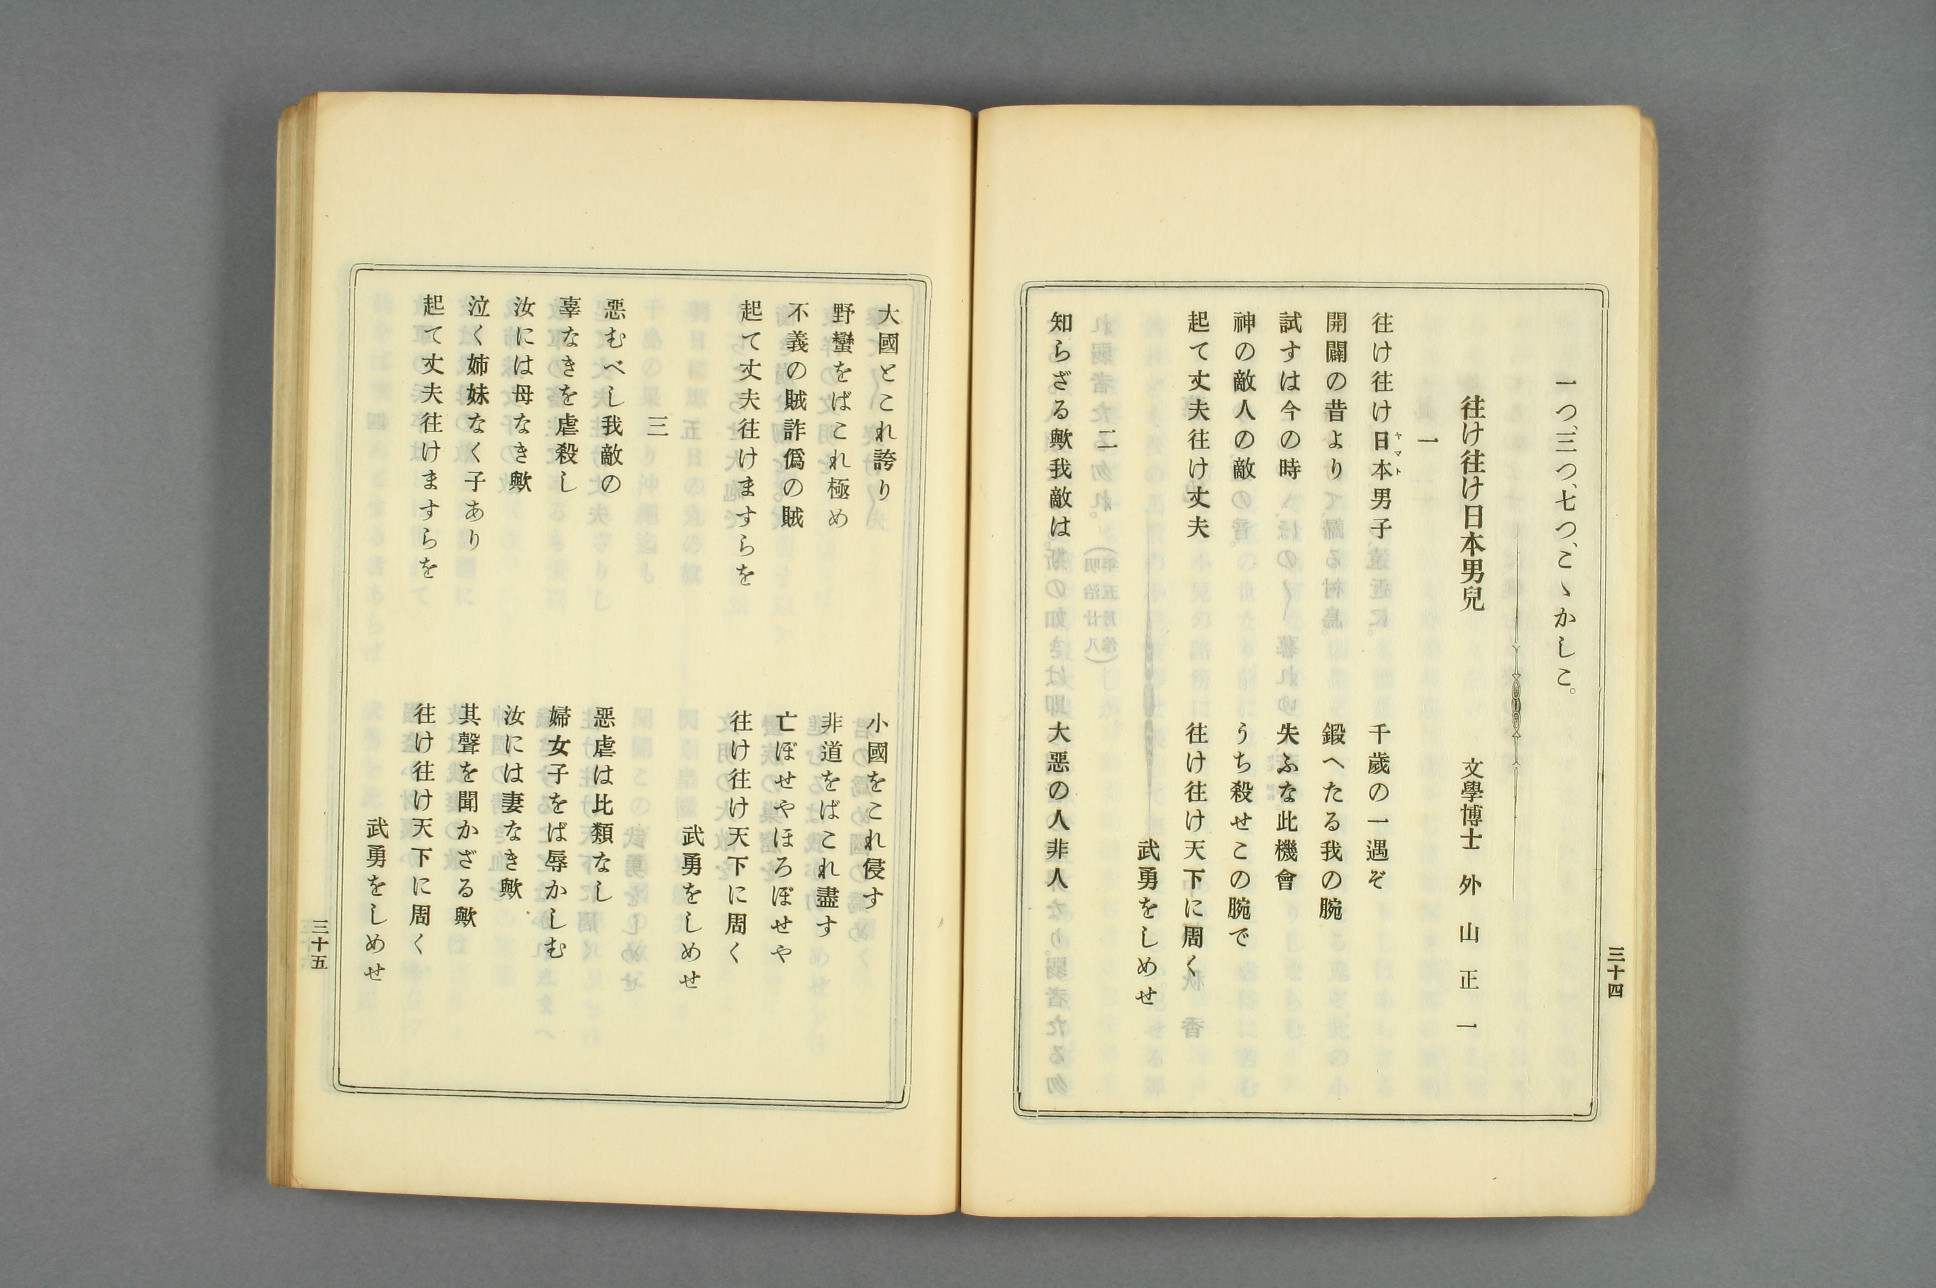 一つ、三つ、七つ、こゝかしこ。
往け往け日本男兒
文學博士 外山正一
一
往け往け日本男子 千歳の一遇ぞ
ヤマト
開闢の昔よりて 鍛へたる我の腕
試すは今の時 失ふな此機會
神の敵人の敵 うち殺せこの腕で
起て丈夫往け丈夫 往け往け天下に周く
武勇をしめせ
二
知らざる歟我敵は 大惡の人非人
三十四
大國とこれ誇り 小國をこれ侵す
野蠻をばこれ極め 非道をばこれ盡す
不義の賊詐僞の賊 亡ぼせやほろぼせや
起て丈夫往けますらを 往け往け天下に周く
武勇をしめせ
三
惡むべし我敵の 惡虐は比類なし
辜なきを虐殺し 婦女子をば辱かしむ
汝には母なき歟 汝には妻なき歟
泣く姉妹なく子あり 其聲を聞かざる歟
起て丈夫往けますらを 往け往け天下に周く
武勇をしめせ
三十五